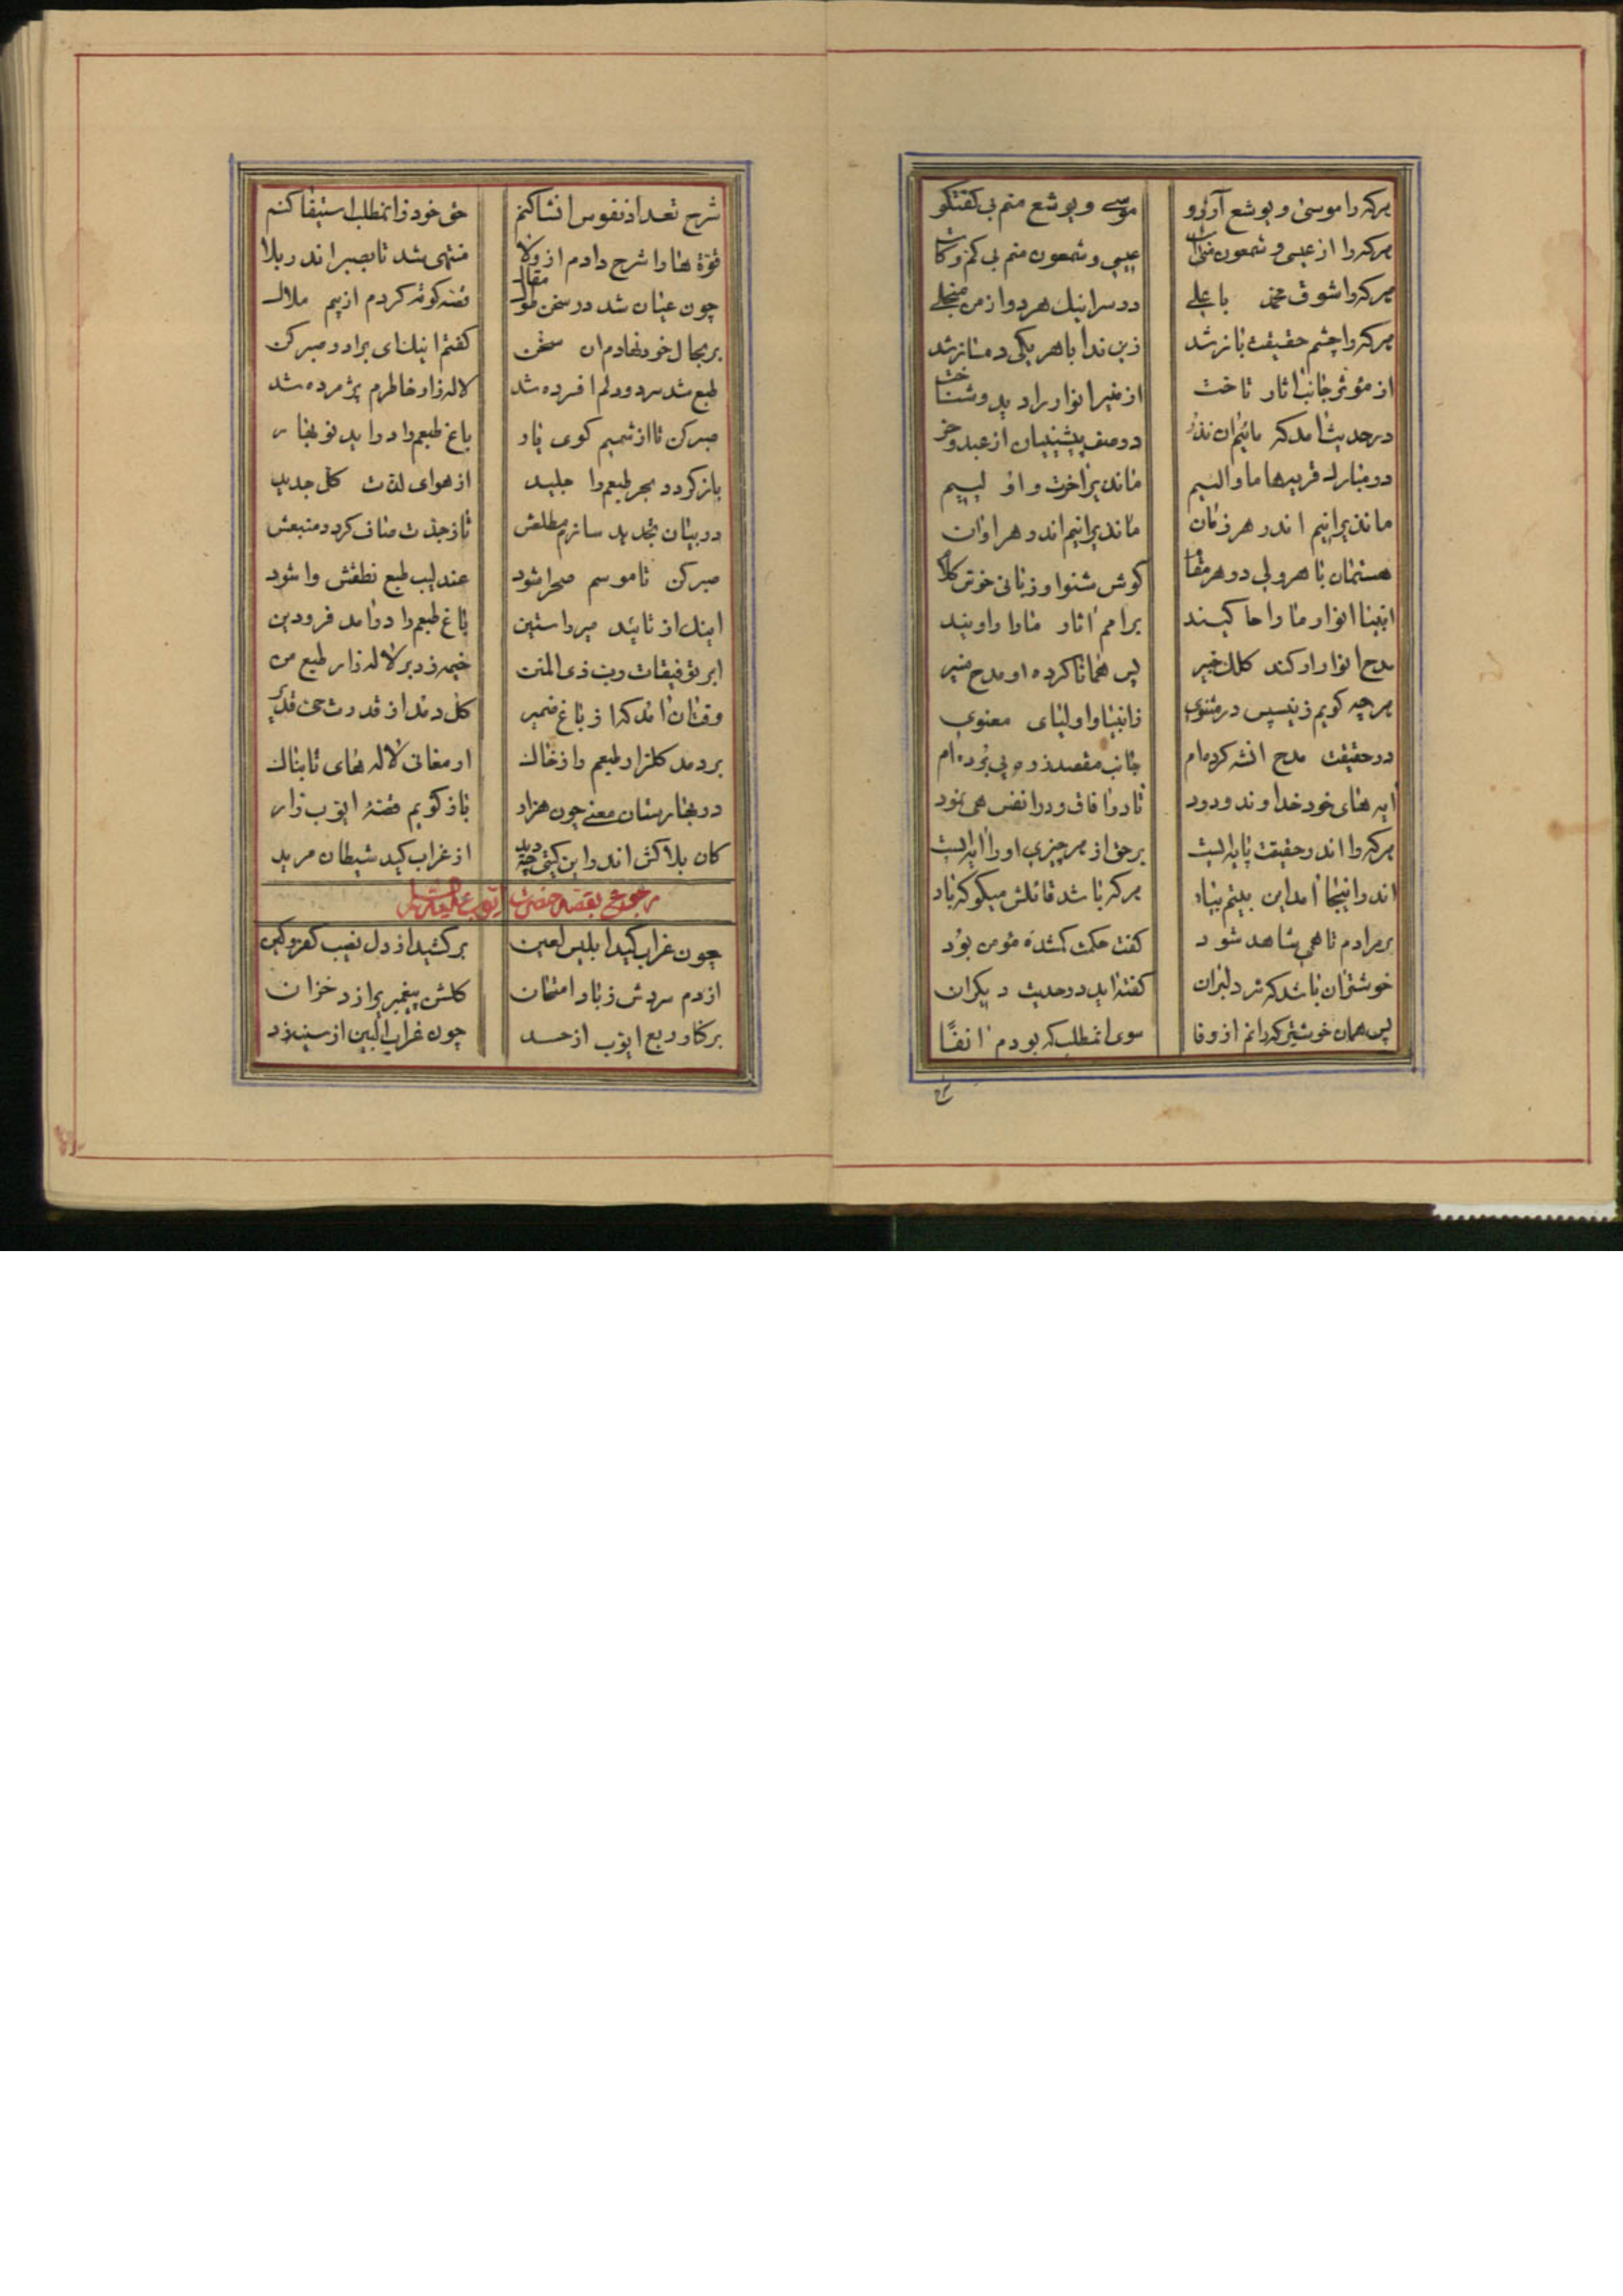 هرکه را موسی و یوشع آرزو موسی و یوشع منم بی گفتگو
هرکه را از عیسی و شمعون عیسی و شمعون منم بی کم و کاست
هرکه را شوق محمد با علی در سر اینک هر دو از من منجلی
هرکه را چشم حقیقت باز شد زین ندا با هر یکی دمساز شد
از مؤثر جانب آثار تاخت از منیر انوار را دید و شناخت
در حدیث آمد که مائیم آن نذر در صف پیشینیان از عبد و حر
در مبارک قریه‌ها ماوا لسیم ما نذیر آخرت و او لییم
ما نذیرانیم اندر هر زمان ما نذیرانیم اندر هر اوان
هستمان با هر ولی در هر مقام گوش شنوا و زبانی خوش کلام
انبیا انوار ما را حاکیند بر امم آثار ما را راویند
مدح انوار ار کند کلک خبیر پس همانا کرده او مدح منیر
هرچه گویم زین سپس در مثنوی ز انبیا و اولیای معنوی
در حقیقت مدح انشه کرده‌ام جانب مقصد ز ره پی برده‌ام
آیه‌های خود خداوند ودود تا در آفاق و در انفس می نمود
هرکه را اندر حقیقت پایه ایست بر حق از هر چیزی او را آیه ایست
اندر اینجا آمد این بیتم بیاد هرکه باشد قائلش میگو که باد
بر مرادم تا همی شاهد شود گفت حکمت گمشده مؤمن بود
خوشتر آن باشد که سر دلبران گفته آید در حدیث دیگران
پس همان خوشتر که رانم از وفا سوی آنمطلب که بودم آنفا
شرح تعداد نفوس انشا کنم حق خود ز آنمطلب استیفا کنم
قوة ها را شرح دادم از ولا منتهی شد تا بصبر اندر بلا
چون عیان شد در سخن طول مقال قصه کوته کردم از بیم ملال
بر بحال خود نهادم آن سخن گفتم اینک ای برادر صبر کن
طبع شد سرد و دلم افسرده شد لاله زار خاطرم پژمرده شد
صبر کن تا از شمیم کوی یار باغ طبعم را در آید نو بهار
باز گردد بحر طبعم را جلید از هوای لذت کل جدید
در بیان تجدید سازم مطلعش تا ز جذبت صاف گردد منبعش
صبر کن تا موسم صحرا شود عندلیب طبع نطقش وا شود
اینک از تایید میر راستین باغ طبعم را در آمد فرودین
ابر توفیقات رب ذی المنن خیمه زد بر لاله زار طبع من
وقت آن آمد که از باغ ضمیر گل دمد از قدرت حی قدیر
بر دمد گلزار طبعم را ز خاک ارمغانی لاله های تابناک
در بهارستان معنی چون هزار باز گویم قصهٔ ایوب زار
کان بلاکش اندر این گیتی چه دید از غراب کید شیطان مرید
رجوع بقصه حضرت ایوب علیه السلام
چون غراب کید ابلیس لعین برکشید از دل نعیب کفر و کین
از دم سردش ز باد امتحان گلشن پیغمبری را زد خزان
بر کنار ربع ایوب از حسد چون غراب البین از سینه زد